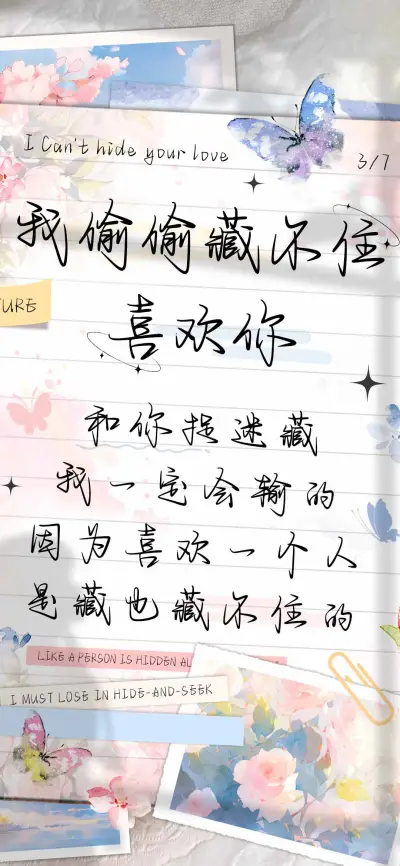 I Can't hide your love
3/7
我偷偷藏不住
喜欢你
TURE
和你捉迷藏
我一定会输的
因为喜欢一个人
是藏也藏不住的
LIKE A PERSON IS HIDDEN AL
I MUST LOSE IN HIDE-AND-SEEK